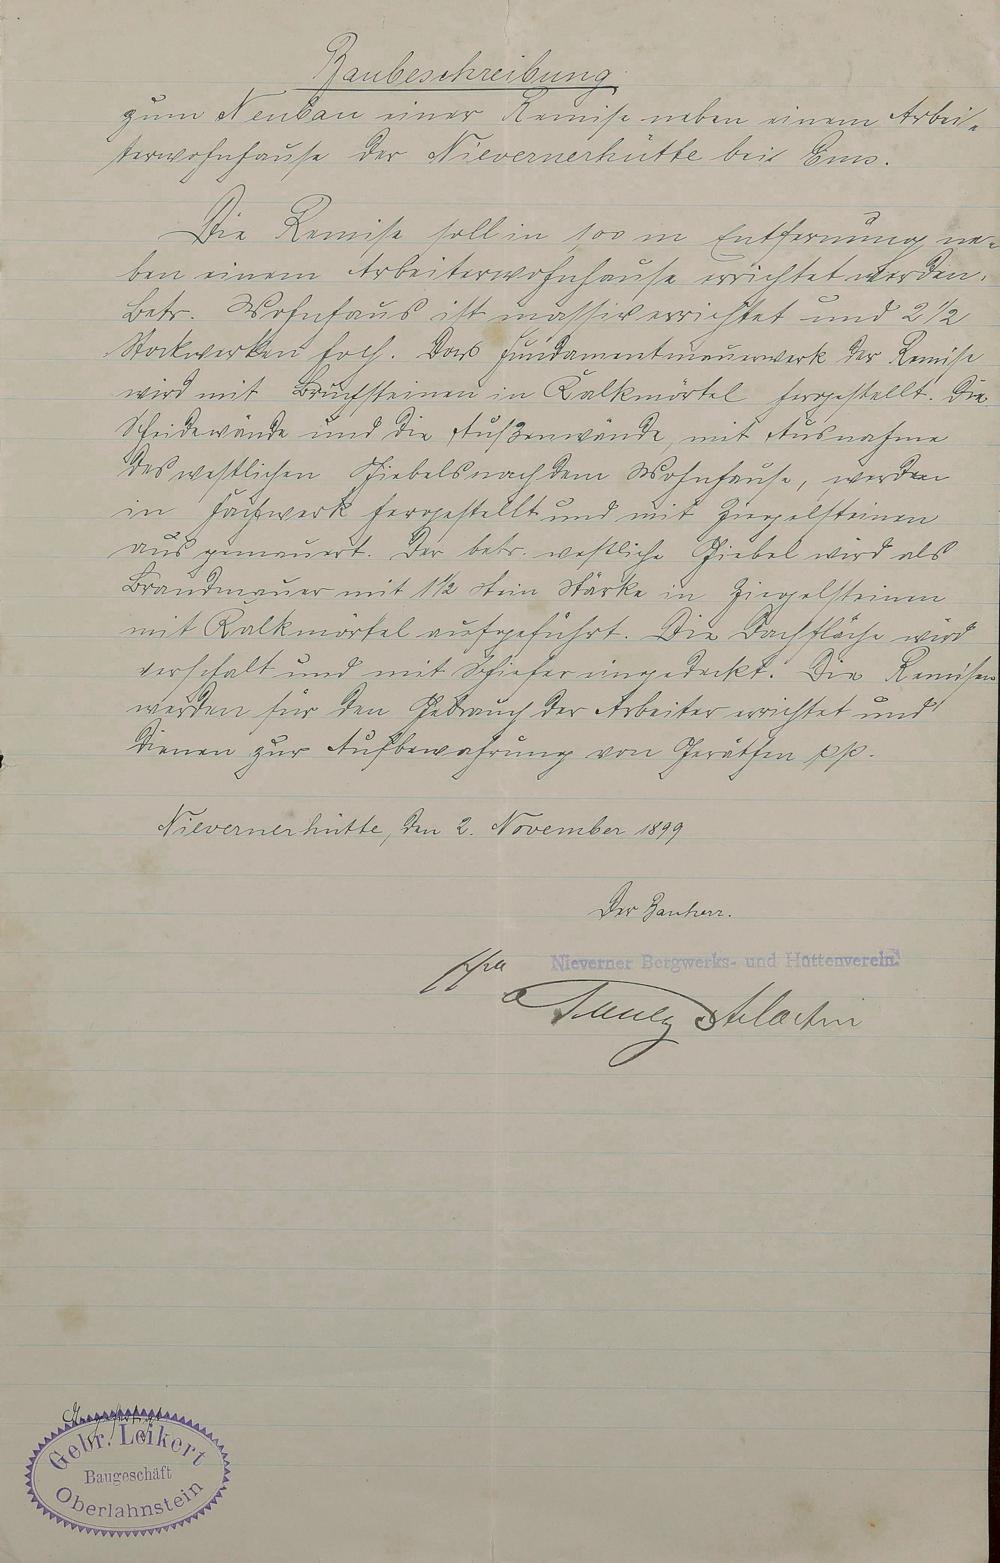 Baubeschreibung
zum Neubau einer Remise neben einem Arbei-
terwohnhause der Nievernerhütte bei Ems.
Die Remise soll in 100 m Entfernung ne-
ben einem Arbeiterwohnhause errichtet werden.
Betr. Wohnhaus ist massiv errichtet und 2 1/2
Stockwerken hoch. Das Fundamentmauerwerk der Remise
wird mit Bruchsteinen in Kalkmörtel hergestellt. Die
Scheidewände und die Außenwände, mit Ausnahme
des westlichen Giebels nach dem Wohnhause, werden
in Fachwerk hergestellt und mit Ziegelsteinen
aus gemauert. Der betr. westliche Giebel wird als
Brandmauer mit 1 1/2 Stein Stärke in Ziegelsteinen
mit Kalkmörtel aufgeführt. Die Dachfläche wird
verschalt und mit Schiefer eingedeckt. Die Remisen
werden für den Gebrauch der Arbeiter errichtet und
dienen zur Aufbewahrung von Geräthen pp.
Nievernerhütte, den 2. November 1899
Der Bauherr.
ppa Nieverner Bergwerks- und Hüttenverein.
Angefertigt
Gebr. Leikert
Baugeschäft
Oberlahnstein